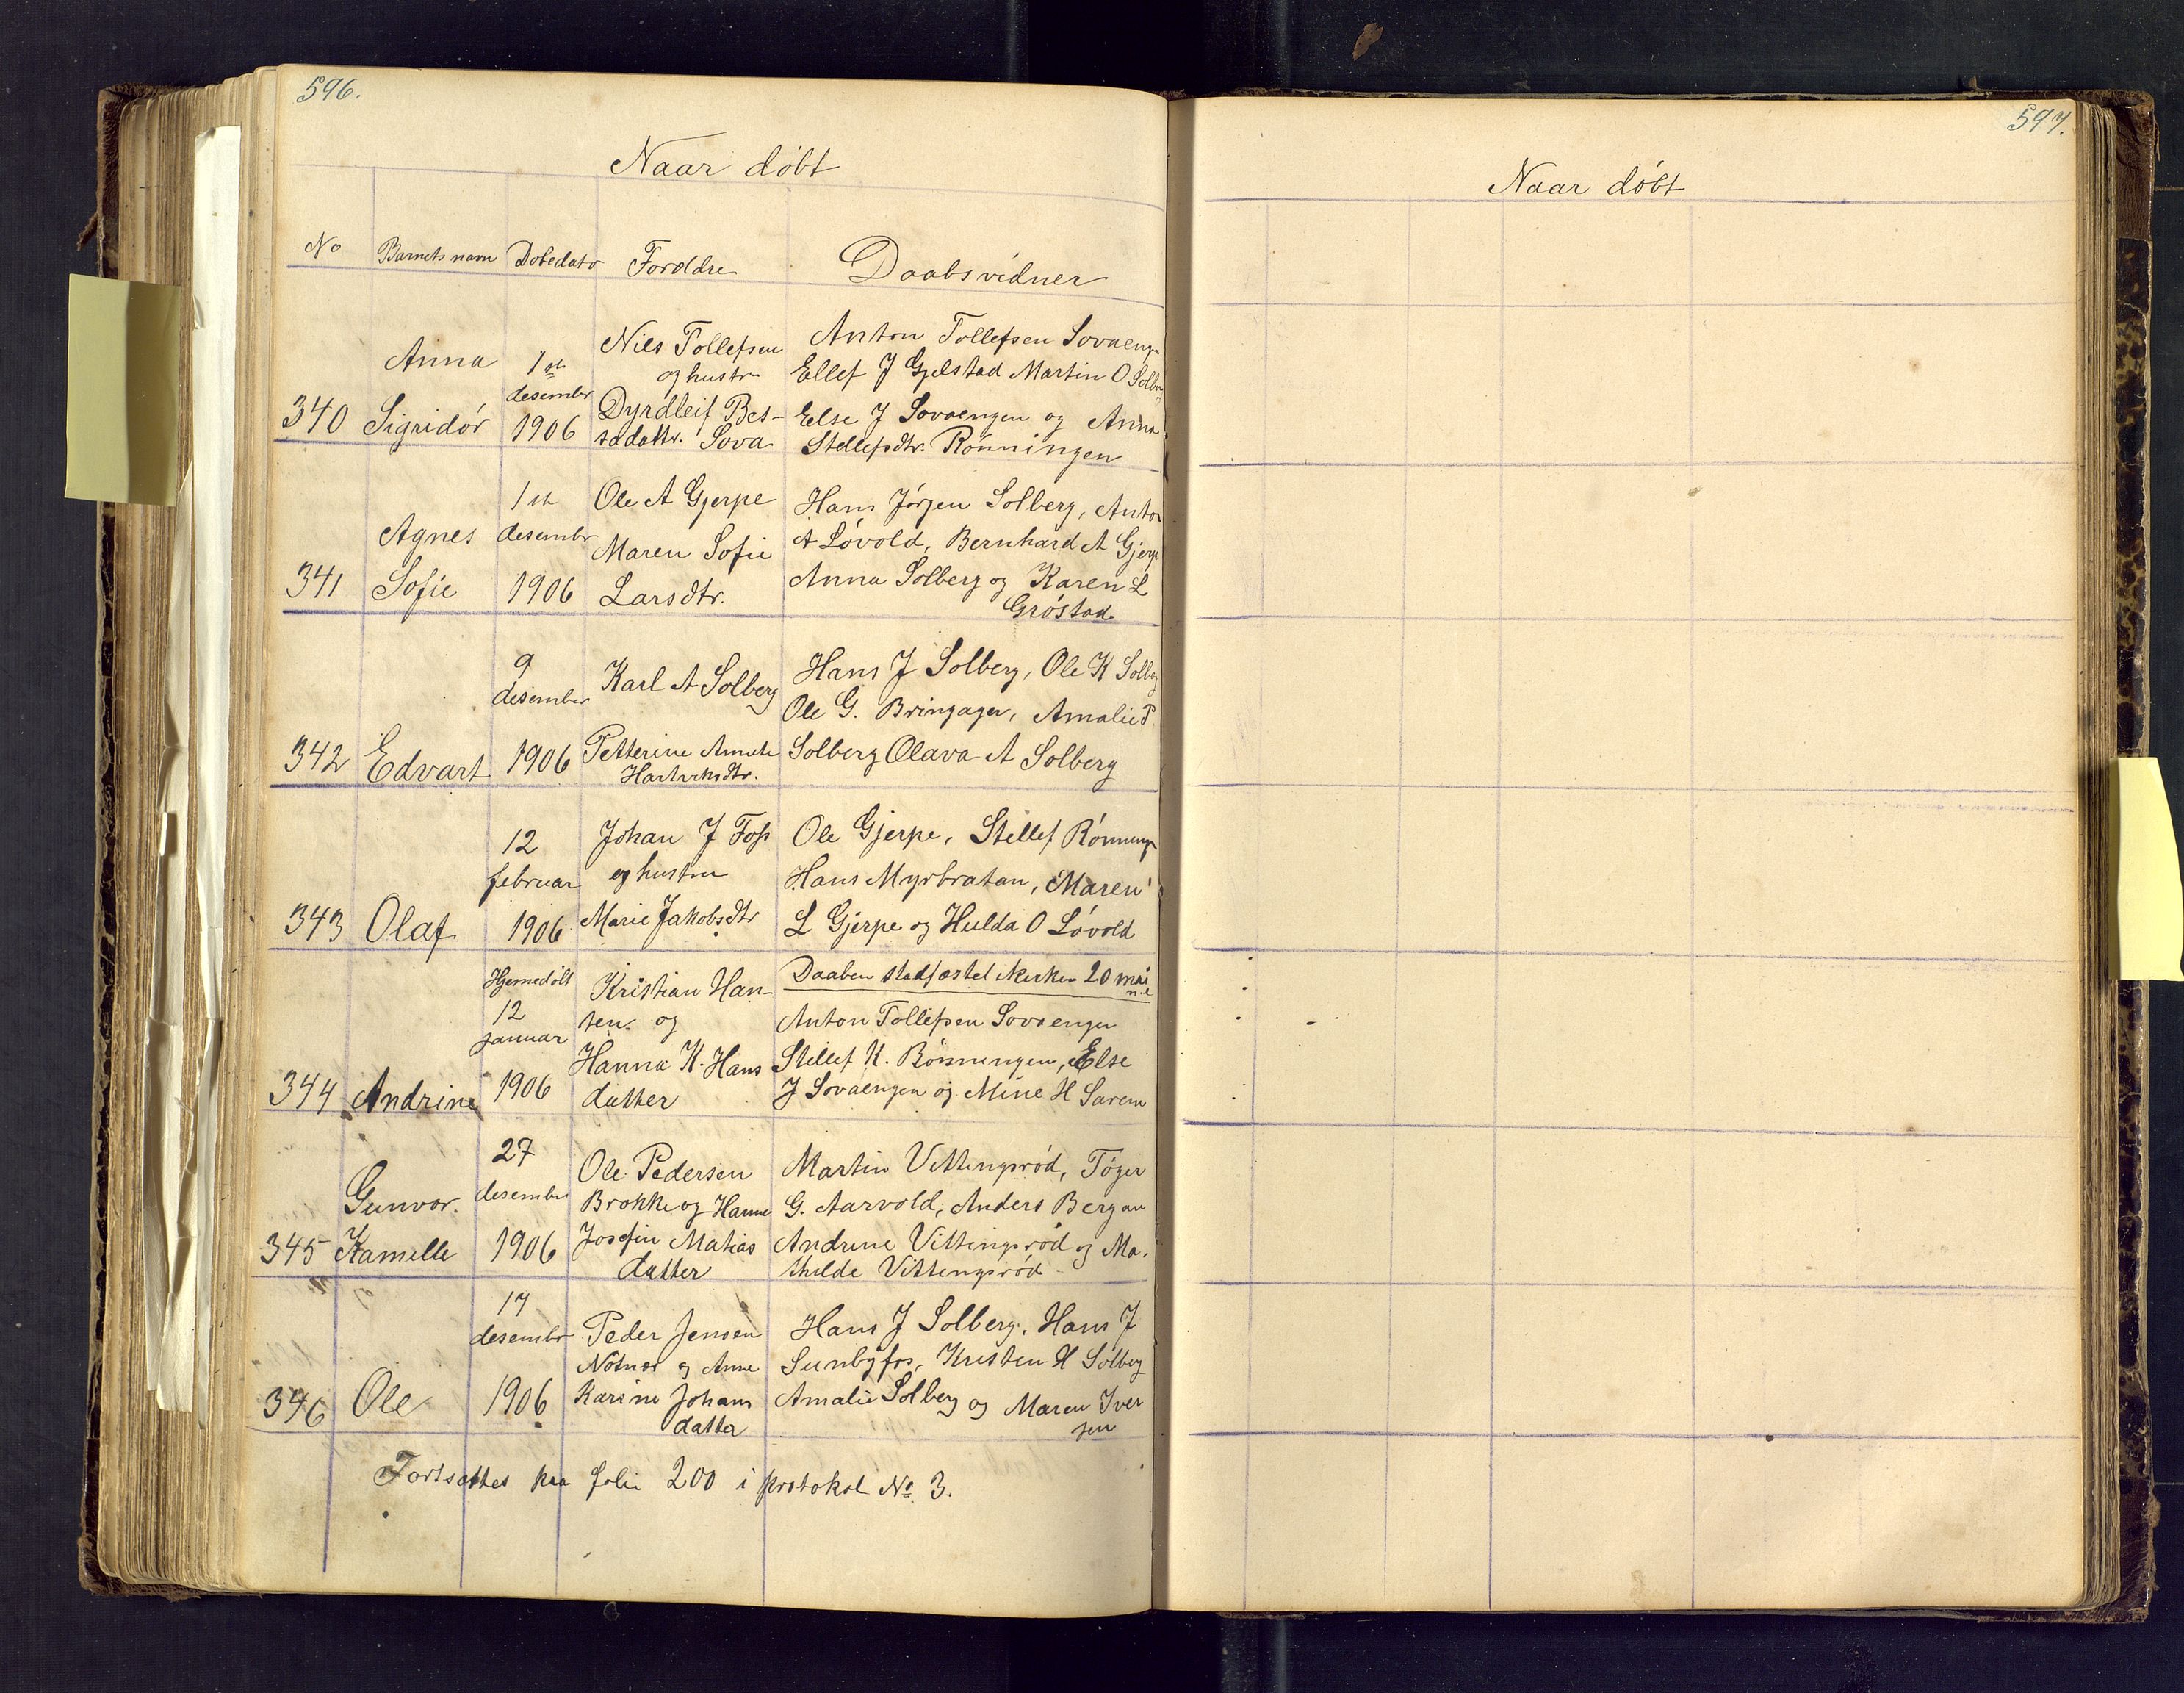 596.
Naar döbt
No Barnets navn Dobedato Foroldre Daabsvidner
340 Anna Sigridör 1ste desembr 1906
Nils Tollefsen
og hustru
Dyrdleif Bes-
sadattr. Sova
Anton Tollefsen Sovaengn
Ellef J Gjelstad Martin O Solberg
Else J Sovaengen og Anna
Stellefsdtr. Rönningen
341 Agnes Sofie 1ste desembr 1906
Ole A Gjerpe
Maren Sofie
Larsdtr.
Hans Jörgen Solberg, Anton
A Lövold, Bernhard A Gjerpe
Anna Solberg og Karen L
Gröstad
342 Edvart 9 desember 1906
Karl A Solberg
Petterine Annete
Hans J Solberg, Ole K Solberg
Ole G. Bringager, Amalie P.
Solberg Olava A Solberg
343 Olaf 12 februar 1906
Johan J Foss
og hustru
Marie Jakobsdtr
Ole Gjerpe, Stellef Rönningn
Hans Myrbraten, Maren
L Gjerpe og Hulda O Lövold
344 Andrine Hjemedöbt 12 januar 1906
Kristian Han-
sen. og
Hanna K. Hans
datter
Daaben stadfæstet i kirken 20 mai
Anton Tollefsen Sovaengen
Stellef K. Rönningen, Else
J Sovaengen og Mine H
345 Gunvor. Kamille 27 desembr 1906
Ole Pedersen
Brokke og Hanne
Josefin Matias
datter
Martin Vittingsröd, Töger
G. Aarvold, Anders Bergan
Andrine Vittingsröd og Ma.
thilde Vittingsröd
346 Ole 17 desembr 1906
Peder Jensen
og Anne
Karine Johans
datter
Hans J Solberg, Hans J
Sunbyfos, Kristen H Solberg
Amalie Solberg og Maren Iver
sen
Fortsættes paa folie 200 i protokol No 3.
597.
Naar döbt